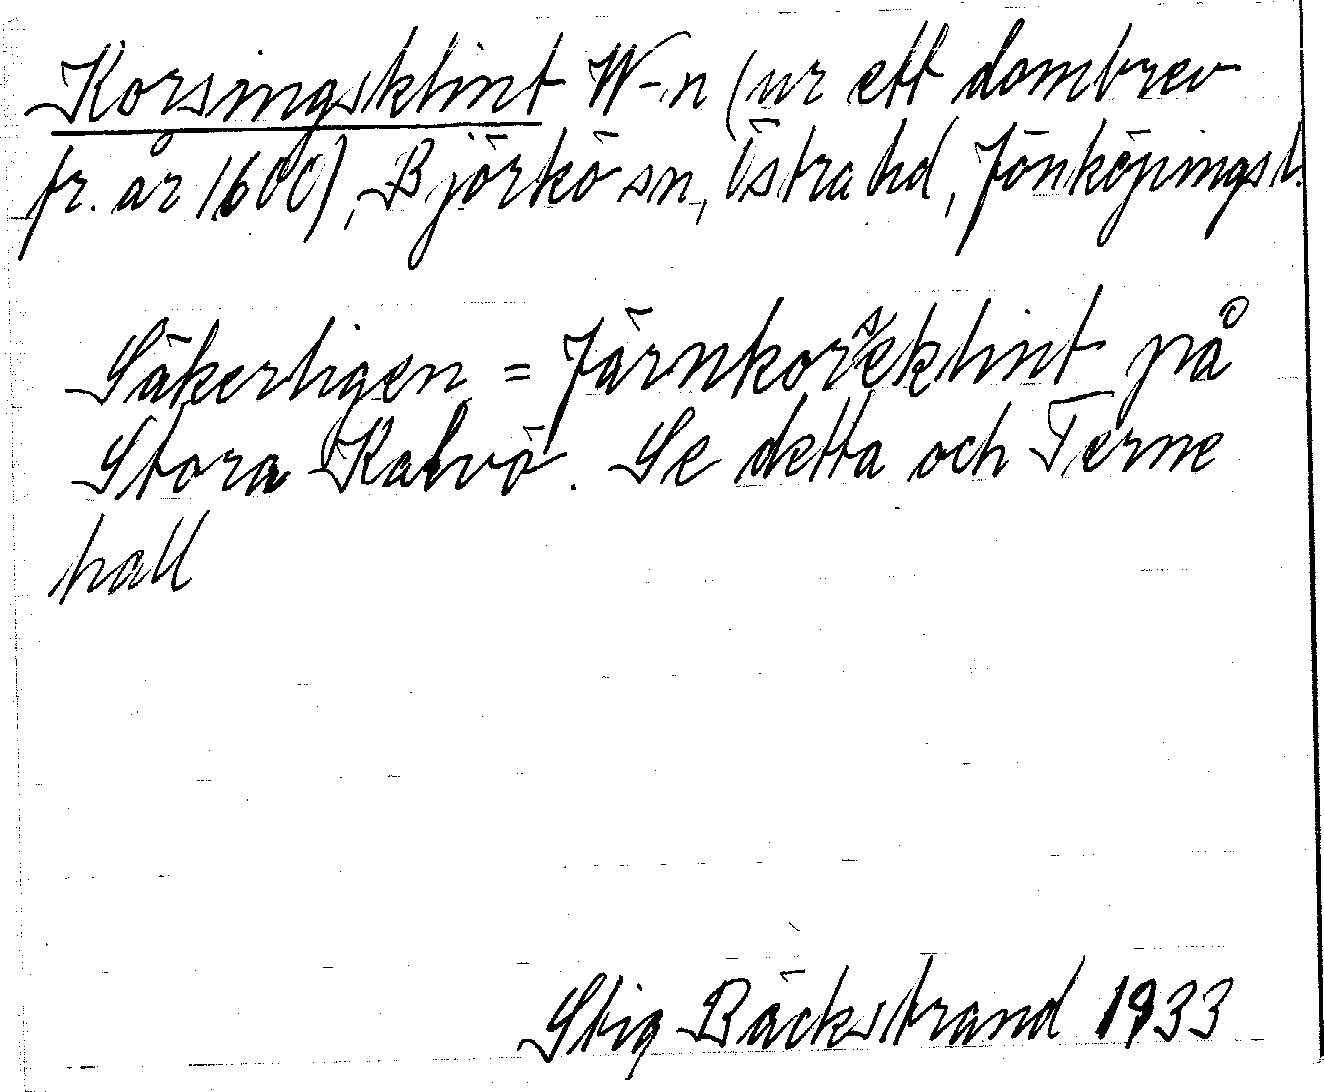 Korsingsklint W-n (ur ett dombrev
fr. år 1600), Björkö sn, Östra hd, Jönköpingsl.
Säkerligen = Järnkorseklint på
Stora Kalvö. Se detta och Terne
hall
Stig Bäckstrand 1933